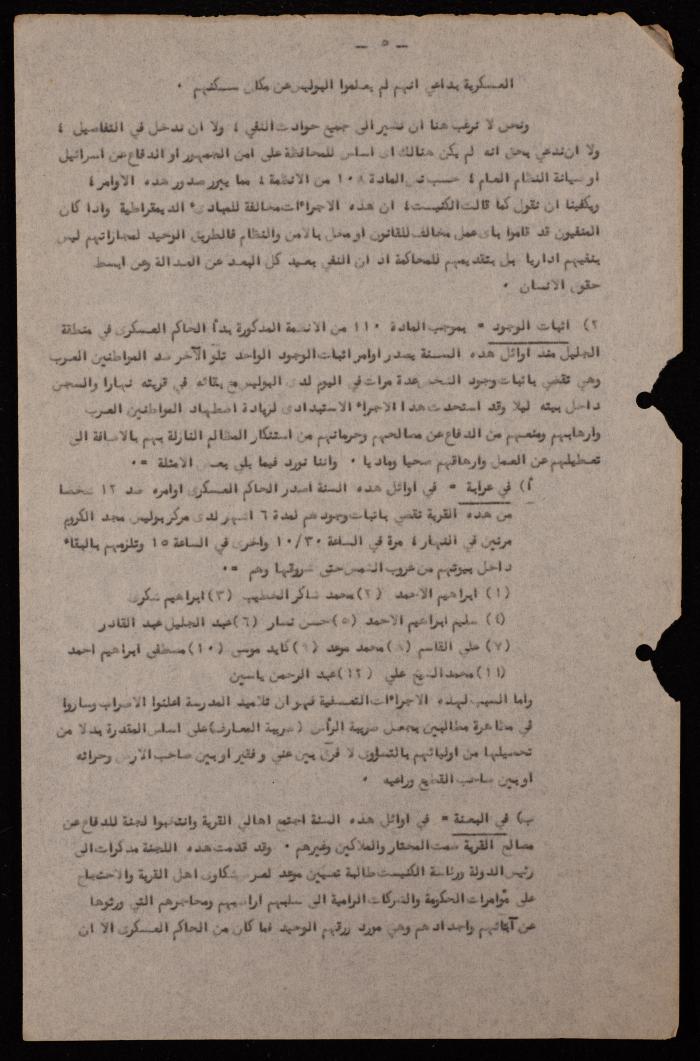 — ٥ —
العسكرية يداعي انهم لم يعلموا البوليس عن مكان سكنهم .
ونحن لا نرغب هنا ان نشير الى جميع حوادث النفي ٤ ولا ان ندخل في التفاصيل ٤
ولا ان ندعي بحق انه لم يكن هنالك اى اساس للمحافظة على امن الجمهور او الدفاع عن اسرائيل
او صيانة النظام العام ٤ حسب نص المادة ١٠٨ من الانظمة ٤ مما يبرر صدور هذه الاوامر ٤
ويكفينا ان نقول كما قالت الكنيست ٤ ان هذه الاجراءات مخالفة للمبادىء الديمقراطية واذا كان
المنفيون قد قاموا باى عمل مخالف للقانون او مخل بالامن والنظام فالطريق الوحيد لمجازاتهم ليس
بنفيهم اداريا بل بتقديمهم للمحاكمة اذ ان النفي بعيد كل البعد عن العدالة وعن ابسط
حقوق الانسان .
٢) اثبات الوجود = بموجب المادة ١١٠ من الانظمة المذكورة بدأ الحاكم العسكرى في منطقة
الجليل منذ اوائل هذه السنة يصدر اوامر اثبات الوجود الواحد تلو الآخر ضد المواطنين العرب
وهي تقضي باثبات وجود الشخص عدة مرات في اليوم لدى البوليس مع بقائه في قريته نهارا والسجن
داخل بيته ليلا وقد استحدث هذا الاجراء الاستبدادى لزيادة اضطهاد المواطنين العرب
وارهابهم ومنعهم من الدفاع عن مصالحهم وحرمانهم من استنكار المظالم النازلة بهم بالاضافة الى
تعطيلهم عن العمل وارهاقهم صحيا وماديا . واننا نورد فيما يلي بعض الامثلة =.
أ) في عرابة = في اوائل هذه السنة اصدر الحاكم العسكرى اوامره ضد ١٢ شخصا
من هذه القرية تقضي باثبات وجودهم لمدة ٦ اشهر لدى مركز بوليس مجد الكروم
مرتين في النهار ٤ مرة في الساعة ١٠/٣٠ واخرى في الساعة ١٥ وتلزمهم بالبقاء
داخل بيوتهم من غروب الشمس حتى شروقها وهم =.
(١) ابراهيم الاحمد (٢) محمد شاكر الخطيب (٣) ابراهيم شكرى
(٤) سليم ابراهيم الاحمد (٥) حسن نصار (٦) عبد الجليل عبد القادر
(٧) علي القاسم (٨) محمد موعد (٩) كايد موسى (١٠) مصطفى ابراهيم احمد
(١١) محمد الشيخ علي (١٢) عبد الرحمن ياسين
واما السبب لهذه الاجراءات التعسفية فهو ان تلاميذ المدرسة اعلنوا الاضراب وساروا
في مظاهرة مطالبين بجعل ضريبة الرأس (ضريبة المعارف) على اساس المقدرة بدلا من
تحصيلها من اوليائهم بالتساوى لا فرق بين غني وفقير او بين صاحب الارض وحراثه
او بين صاحب القطيع وراعيه .
ب) في البعنة = في اوائل هذه السنة اجتمع اهالي القرية وانتخبوا لجنة للدفاع عن
مصالح القرية ضمت المختار والملاكين وغيرهم . وقد قدمت هذه اللجنة مذكرات الى
رئيس الدولة ورئاسة الكنيست طالبة تعيين موعد لعرض شكاوى اهل القرية والاحتجاج
على مؤامرات الحكومة والشركات الرامية الى سلبهم اراضيهم ومحاجرهم التي ورثوها
عن آبائهم واجدادهم وهي مورد رزقهم الوحيد فما كان من الحاكم العسكرى الا ان